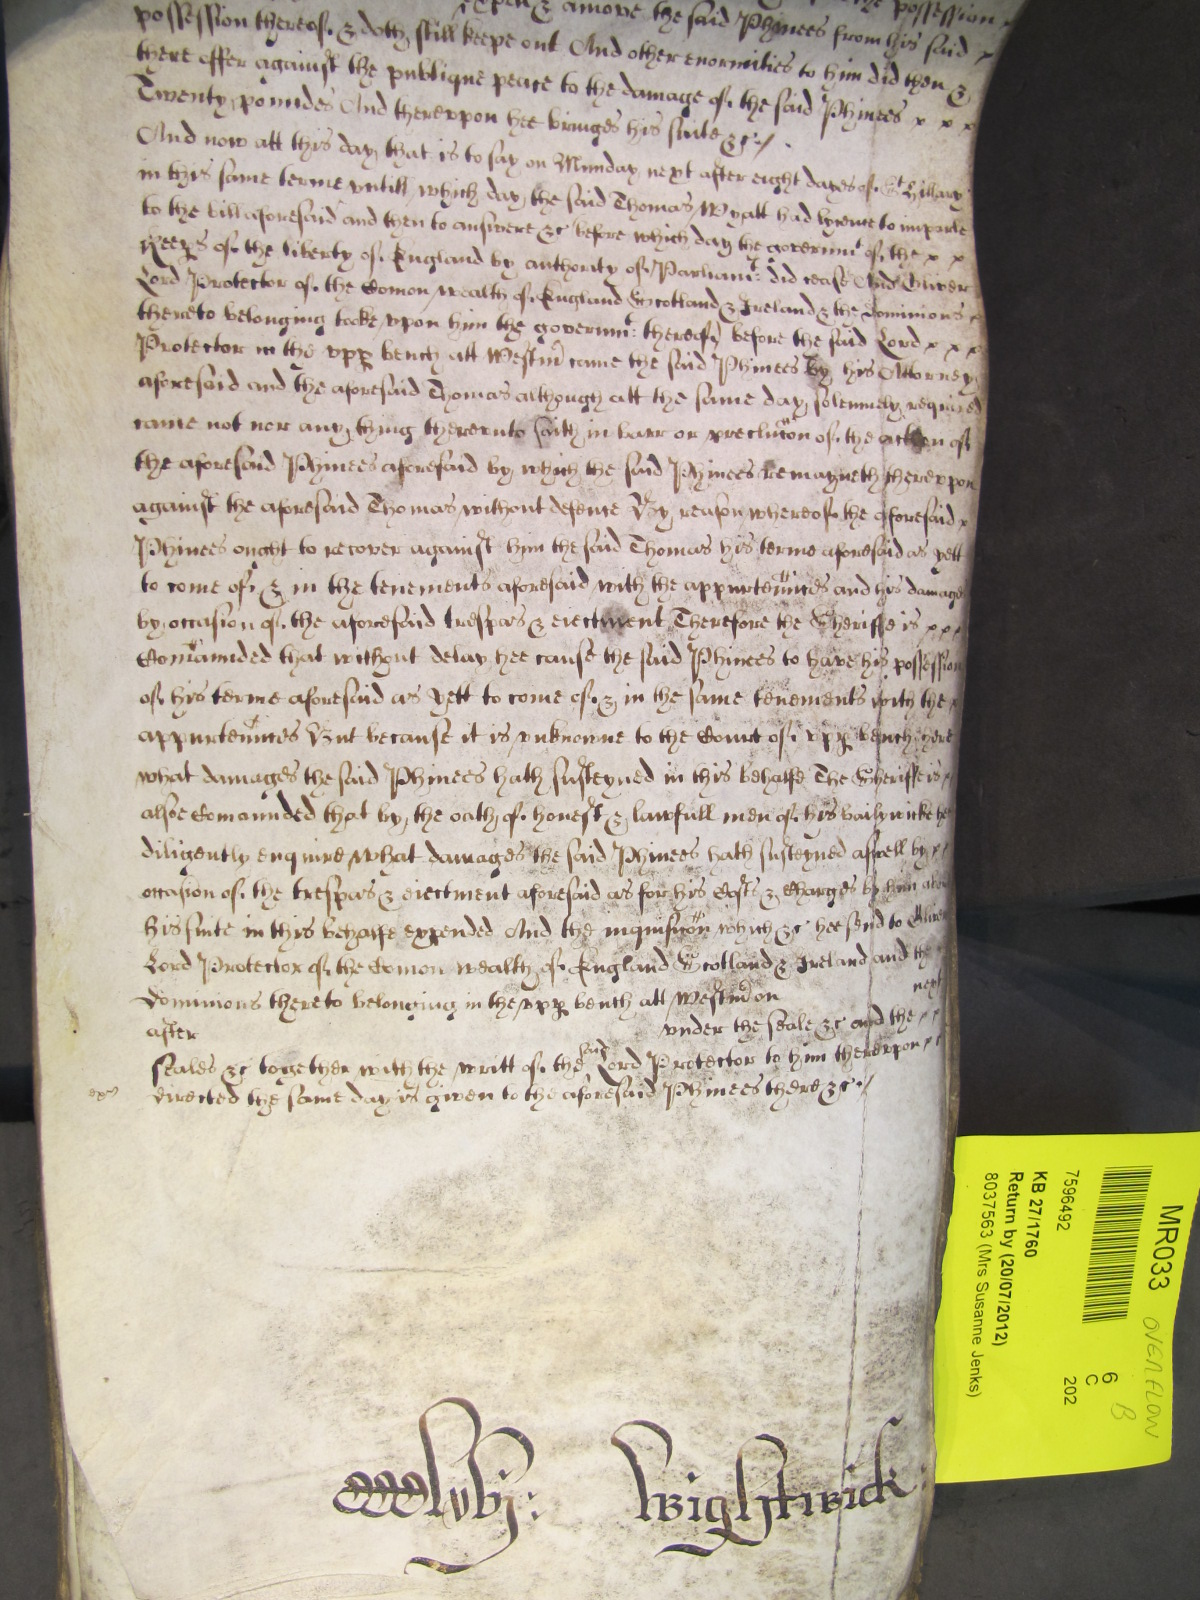 expell & amove the said Phinees from his said possession x
possession thereof & doth still keepe out And other enormities to him did then &
there offer against the publique peace to the damage of the said Phinees x x x
Twenty poundes And therevpon hee bringes his suite &c /.
And now att this day that is to say on Munday next after eight dayes of St Hillary
in this same terme vntill which day the said Thomas Wyatt had lycence to imparle
to the bill aforesaid and then to answere &c before which day the governmt of the x x
Keeps of the liberty of England by authority of Parliamt: did cease And Oliver
Lord Protector of the Comon wealth of England Scotland & Ireland & the Dominions x
thereto belonging tooke vpon him the governmt: thereof) before the said Lord x x x
Protector in the vpp bench att Westm came the said Phinees by his Attorney
aforesaid and the aforesaid Thomas although att the same day solemnely required
came not nor any thing therevnto saith in barr or preclucon of the accon of
the aforesaid Phinees aforesaid by which the said Phinees remayneth therevpon
against the aforesaid Thomas without defence By reason whereof the aforesaid x
Phinees ought to recover against him the said Thomas his terme aforesaid as yett
to come of & in the tenements aforesaid with the appurtennces and his damage
by occasion of the aforesaid trespas & eiectment Therefore the Sheriffe is x x x
Comaunded that without delay hee cause the said Phinees to have his possession
of his terme aforesaid as yett to come of & in the same tenements with the x
appurtennces But because it is vnknowne to the Court of vpp bench here
what damages the said Phinees hath susteyned in this behalfe The Sheriffe is x
alsoe Comaunded that by the oath of honest & lawfull men of his bailywicke he
diligently enquire what damages the said Phinees hath susteyned aswell by x x
occasion of the trespas & eiectment aforesaid as for his Costs & Charges by him about
his suite in this behalfe expended And the inquisicon which &c hee send to Oliver
Lord Protector of the Comon wealth of England Scotland & Ireland and the
Dominions thereto belonging in the vpp bench att Westm on next
after vnder the seale &c and the x x
seales &c together with the writt of the said Lord Protector to him therevpon x x
directed the same day is given to the aforesaid Phinees there &c /
Wightwick
MR033 OVERFLOW
6 B
C
202
7596492
KB 27/1760
Return by (20/07/2012)
8037563 (Mrs Susanne Jenks)